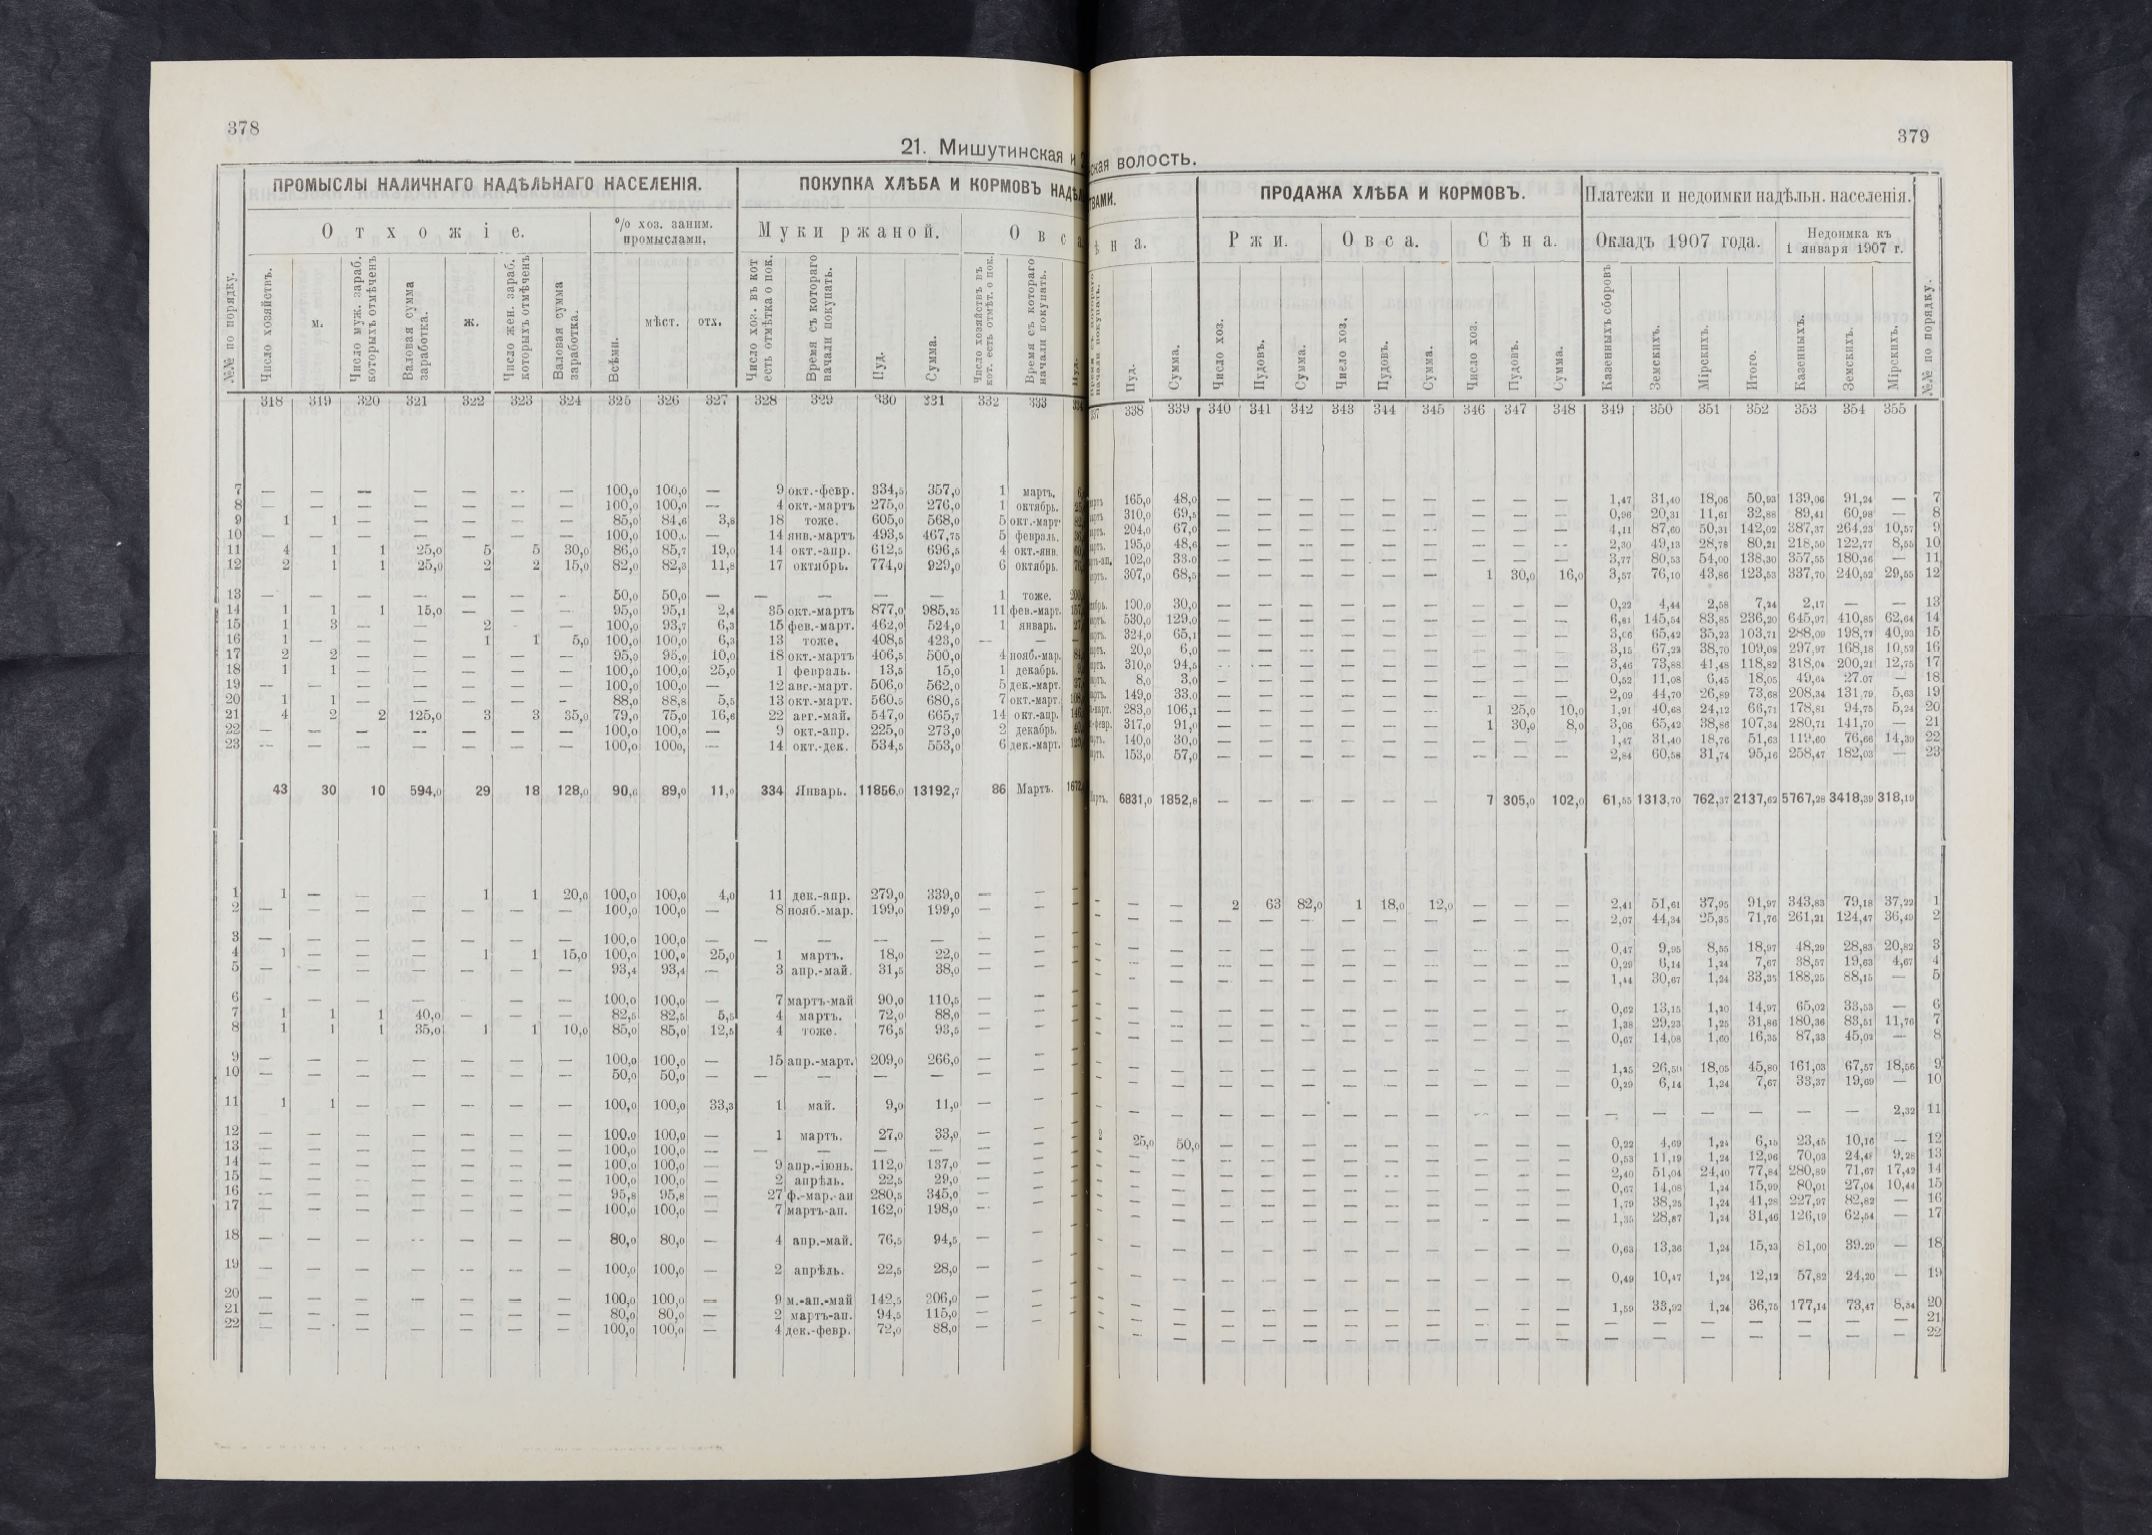 378
21. Мишутинская и
ПРОМЫСЛЫ НАЛИЧНАГО НАДѢЛЬНАГО НАСЕЛЕНІЯ.
ПОКУПКА ХЛѢБА И КОРМОВЪ НАДѢЛ
Отхожіе.
% хоз. заним. промыслами.
Муки ржаной.
Овса
№№ по порядку.
Число хозяйствъ.
м.
Число муж. зараб. которыхъ отмѣченъ
Валовая сумма заработка.
ж.
Число жен. зараб. которыхъ отмѣченъ
Валовая сумма заработка.
Всѣми.
мѣст.
отх.
Число хоз. въ кот есть отмѣтка о пок.
Время съ котораго начали покупать.
Пуд.
Сумма.
Число хозяйствъ въ кот. есть отмѣт. о пок.
Время съ котораго начали покупать.
Пуд.
318 319 320 321 322 323 324 325 326 327 328 329 330 331 332 333 334
7 — — — — — — — 100,0 100,0 — 9 окт.-февр. 334,5 357,0 1 мартъ.
8 — — — — — — — 100,0 100,0 — 4 окт.-мартъ 275,0 276,0 1 октябрь.
9 1 1 — — — — — 85,0 84,6 3,8 18 тоже. 605,0 568,0 5 окт.-март.
10 — — — — — — — 100,0 100,0 — 14 янв.-мартъ 493,5 467,75 5 февраль.
11 4 1 1 25,0 5 5 30,0 86,0 85,7 19,0 14 окт.-апр. 612,5 696,5 4 окт.-янв.
12 2 1 1 25,0 2 2 15,0 82,0 82,3 11,8 17 октябрь. 774,0 929,0 6 октябрь.
13 — — — — — — — 50,0 50,0 — — — — — 1 тоже.
14 1 1 1 15,0 — — — 95,0 95,1 2,4 35 окт.-мартъ 877,0 985,25 11 фев.-март.
15 1 3 — — 2 — — 100,0 93,7 6,3 15 фев.-март. 462,0 524,0 1 январь.
16 1 — — — 1 1 5,0 100,0 100,0 6,3 13 тоже. 408,5 423,0 — —
17 2 2 — — — — — 95,0 95,0 10,0 18 окт.-мартъ 406,5 500,0 4 нояб.-мар.
18 1 1 — — — — — 100,0 100,0 25,0 1 февраль. 13,5 15,0 1 декабрь.
19 — — — — — — — 100,0 100,0 — 12 авг.-март. 506,0 562,0 5 дек.-март.
20 1 1 — — — — — 88,0 88,8 5,5 13 окт.-март. 560,5 680,5 7 окт.-март.
21 4 2 2 125,0 3 3 35,0 79,0 75,0 16,6 22 авг.-май. 547,0 665,7 14 окт.-апр.
22 — — — — — — — 100,0 100,0 — 9 окт.-апр. 225,0 273,0 2 декабрь.
23 — — — — — — — 100,0 100,0 — 14 окт.-дек. 534,5 553,0 6 дек.-март.
43 30 10 594,0 29 18 128,0 90,6 89,0 11,0 334 Январь. 11856,0 13192,7 86 Мартъ.
1 1 — — — 1 1 20,0 100,0 100,0 4,0 11 дек.-апр. 279,0 339,0 — —
2 — — — — — — — 100,0 100,0 — 8 нояб.-мар. 199,0 199,0 — —
3 — — — — — — — 100,0 100,0 — — — — — — —
4 1 — — — 1 1 15,0 100,0 100,0 25,0 1 мартъ. 18,0 22,0 — —
5 — — — — — — — 93,4 93,4 — 3 апр.-май. 31,5 38,0 — —
6 — — — — — — — 100,0 100,0 — 7 мартъ-май 90,0 110,5 — —
7 1 1 1 40,0 — — — 82,5 82,5 5,5 4 мартъ. 72,0 88,0 — —
8 1 1 1 35,0 1 1 10,0 85,0 85,0 12,5 4 тоже. 76,5 93,5 — —
9 — — — — — — — 100,0 100,0 — 15 апр.-март. 209,0 266,0 — —
10 — — — — — — — 50,0 50,0 — — — — — — —
11 1 1 — — — — — 100,0 100,0 33,3 1 май. 9,0 11,0 — —
12 — — — — — — — 100,0 100,0 — 1 мартъ. 27,0 33,0 — —
13 — — — — — — — 100,0 100,0 — — — — — — —
14 — — — — — — — 100,0 100,0 — 9 апр.-іюнь. 112,0 137,0 — —
15 — — — — — — — 100,0 100,0 — 2 апрѣль. 22,5 29,0 — —
16 — — — — — — — 95,8 95,8 — 27 ф.-мар.-ап 280,5 345,0 — —
17 — — — — — — — 100,0 100,0 — 7 мартъ-ап. 162,0 198,0 — —
18 — — — — — — — 80,0 80,0 — 4 апр.-май. 76,5 94,5 — —
19 — — — — — — — 100,0 100,0 — 2 апрѣль. 22,5 28,0 — —
20 — — — — — — — 100,0 100,0 — 9 м.-ап.-май 142,5 206,0 — —
21 — — — — — — — 80,0 80,0 — 2 мартъ-ап. 94,5 115,0 — —
22 — — — — — — — 100,0 100,0 — 4 дек.-февр. 72,0 88,0 — —
379
ская волость.
ТВАМИ.
ПРОДАЖА ХЛѢБА И КОРМОВЪ.
Платежи и недоимки надѣльн. населенія.
ѣна.
Ржи.
Овса.
Сѣна.
Окладъ 1907 года.
Недоимка къ 1 января 1907 г.
Пуд.
Сумма.
Число хоз.
Пудовъ.
Сумма.
Число хоз.
Пудовъ.
Сумма.
Число хоз.
Пудовъ.
Сумма.
Казенныхъ сборовъ
Земскихъ.
Мірскихъ.
Итого.
Казенныхъ.
Земскихъ.
Мірскихъ.
№№ по порядку.
338 339 340 341 342 343 344 345 346 347 348 349 350 351 352 353 354 355
165,0 48,0 — — — — — — — — — 1,47 31,40 18,06 50,93 139,06 91,24 — 7
310,0 69,5 — — — — — — — — — 0,96 20,31 11,61 32,88 89,41 60,98 — 8
204,0 67,0 — — — — — — — — — 4,11 87,60 50,31 142,02 387,37 264,23 10,57 9
195,0 48,6 — — — — — — — — — 2,30 49,13 28,78 80,21 218,50 122,77 8,55 10
102,0 33,0 — — — — — — — — — 3,77 80,53 54,00 138,30 357,55 180,26 — 11
307,0 68,5 — — — — — — 1 30,0 16,0 3,57 76,10 43,86 123,53 337,70 240,52 29,55 12
100,0 30,0 — — — — — — — — — 0,22 4,44 2,58 7,24 2,17 — — 13
530,0 129,0 — — — — — — — — — 6,81 145,54 83,85 236,20 645,97 410,85 62,64 14
324,0 65,1 — — — — — — — — — 3,06 65,42 35,23 103,71 288,09 198,77 40,93 15
20,0 6,0 — — — — — — — — — 3,15 67,23 38,70 109,08 297,97 168,18 10,52 16
310,0 94,5 — — — — — — — — — 3,46 73,88 41,48 118,82 318,04 200,21 12,75 17
8,0 3,0 — — — — — — — — — 0,52 11,08 6,45 18,05 49,04 27,07 — 18
149,0 33,0 — — — — — — — — — 2,09 44,70 26,89 73,68 208,34 131,79 5,63 19
283,0 106,1 — — — — — — 1 25,0 10,0 1,91 40,68 24,12 66,71 178,81 94,75 5,24 20
317,0 91,0 — — — — — — 1 30,0 8,0 3,06 65,42 38,86 107,34 280,71 141,70 — 21
140,0 30,0 — — — — — — — — — 1,47 31,40 18,76 51,63 119,60 76,66 14,39 22
153,0 57,0 — — — — — — — — — 2,84 60,58 31,74 95,16 258,47 182,03 — 23
6831,0 1852,8 — — — — — — 7 305,0 102,0 61,55 1313,70 762,37 2137,62 5767,28 3418,39 318,19
— — 2 63 82,0 1 18,0 12,0 — — — 2,41 51,61 37,95 91,97 343,83 79,18 37,22 1
— — — — — — — — — — — 2,07 44,34 25,35 71,76 261,21 124,47 36,49 2
— — — — — — — — — — — 0,47 9,95 8,55 18,97 48,29 28,83 20,82 3
— — — — — — — — — — — 0,29 6,14 1,24 7,67 38,57 19,63 4,67 4
— — — — — — — — — — — 1,44 30,67 1,24 33,35 188,25 88,15 — 5
— — — — — — — — — — — 0,62 13,15 1,20 14,97 65,02 33,53 — 6
— — — — — — — — — — — 1,38 29,23 1,25 31,86 180,36 83,51 11,76 7
— — — — — — — — — — — 0,67 14,08 1,60 16,35 87,33 45,02 — 8
— — — — — — — — — — — 1,25 26,50 18,05 45,80 161,03 67,57 18,56 9
— — — — — — — — — — — 0,29 6,14 1,24 7,67 33,37 19,69 — 10
— — — — — — — — — — — — — — — — — 2,32 11
2 25,0 50,0 — — — — — — — — — 0,22 4,69 1,24 6,15 23,45 10,16 — 12
— — — — — — — — — — — 0,53 11,19 1,24 12,96 70,03 24,48 9,28 13
— — — — — — — — — — — 2,40 51,04 24,40 77,84 280,89 71,67 17,42 14
— — — — — — — — — — — 0,67 14,08 1,24 15,99 80,01 27,04 10,44 15
— — — — — — — — — — — 1,79 38,25 1,24 41,28 227,97 82,82 — 16
— — — — — — — — — — — 1,35 28,87 1,24 31,46 126,19 62,54 — 17
— — — — — — — — — — — 0,63 13,36 1,24 15,23 81,00 39,29 — 18
— — — — — — — — — — — 0,49 10,47 1,24 12,12 57,82 24,20 — 19
— — — — — — — — — — — 1,59 33,92 1,24 36,75 177,14 73,47 8,34 20
— — — — — — — — — — — — — — — — — — 21
— — — — — — — — — — — — — — — — — — 22